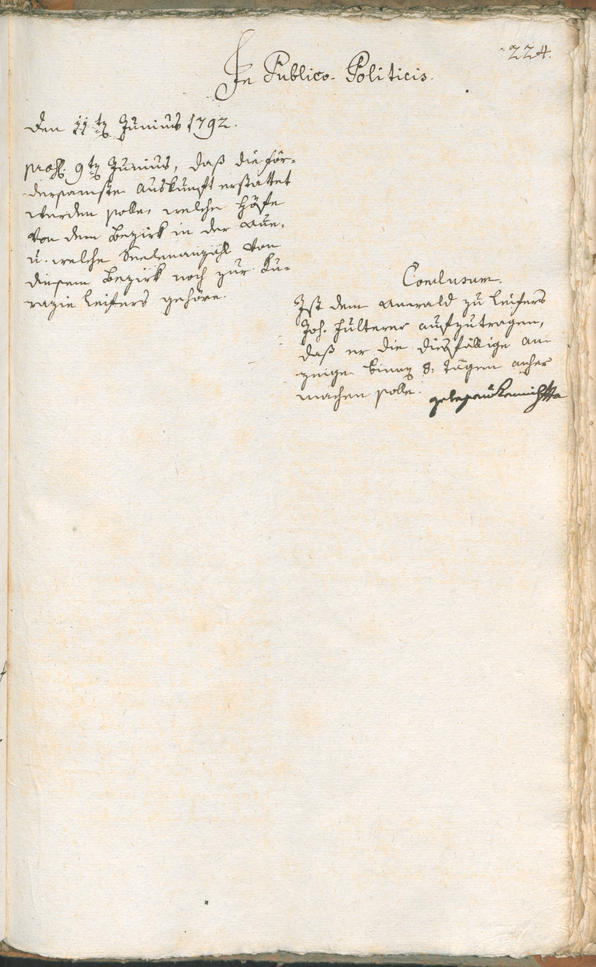 224.
In Publico-Politicis.
den 11ten Junius 1792.
praes. 9ten Junius, daß die för-
dersamste Auskunft erstattet
werden solle, welche Höfe
von dem Bezirk in der Aue,
u. welche Seelenanzahl von
diesem Bezirk noch zur Ku-
razie Leifers gehöre.
Conclusum.
Ist dem Anwald zu Leifers
Joh. Fulterer aufzutragen,
daß er die diesfällige An-
zeige binnen 8. Tägen anher
machen solle.